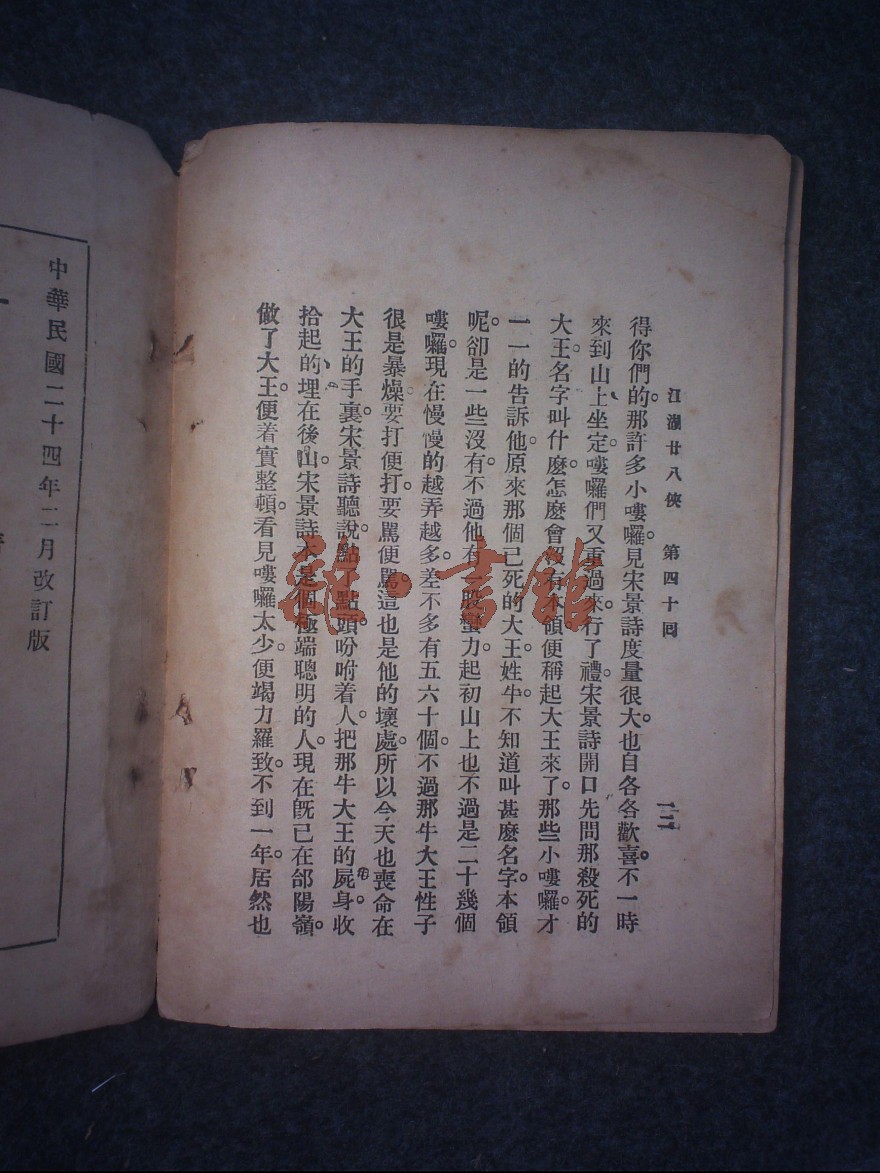 江湖廿八俠　第四十回
一二
得你們的。那許多小嘍囉。見宋景詩度量很大。也自各各歡喜。不一時
來到山上坐定。嘍囉們又重過來。行了禮。宋景詩開口先問那殺死的
大王。名字叫什麼。怎麼會沒有本領。便稱起大王來了。那些小嘍囉。才
一一的告訴他。原來那個已死的大王。姓牛。不知道叫甚麼名字。本領
呢。卻是一些沒有。不過他有一股蠻力。起初山上也不過是二十幾個
嘍囉。現在慢慢的越弄越多。差不多有五六十個。不過那牛大王性子
很是暴燥。要打便打。要罵便罵。這也是他的壞處。所以今天也喪命在
大王的手裏。宋景詩聽說。點了點頭。吩咐着人。把那牛大王的屍身。收
拾起的埋在後山。宋景詩本是個極端聰明的人。現在既已在郃陽嶺。
做了大王。便着實整頓。看見嘍囉太少。便竭力羅致。不到一年。居然也
中華民國二十四年二月改訂版
雜·書館